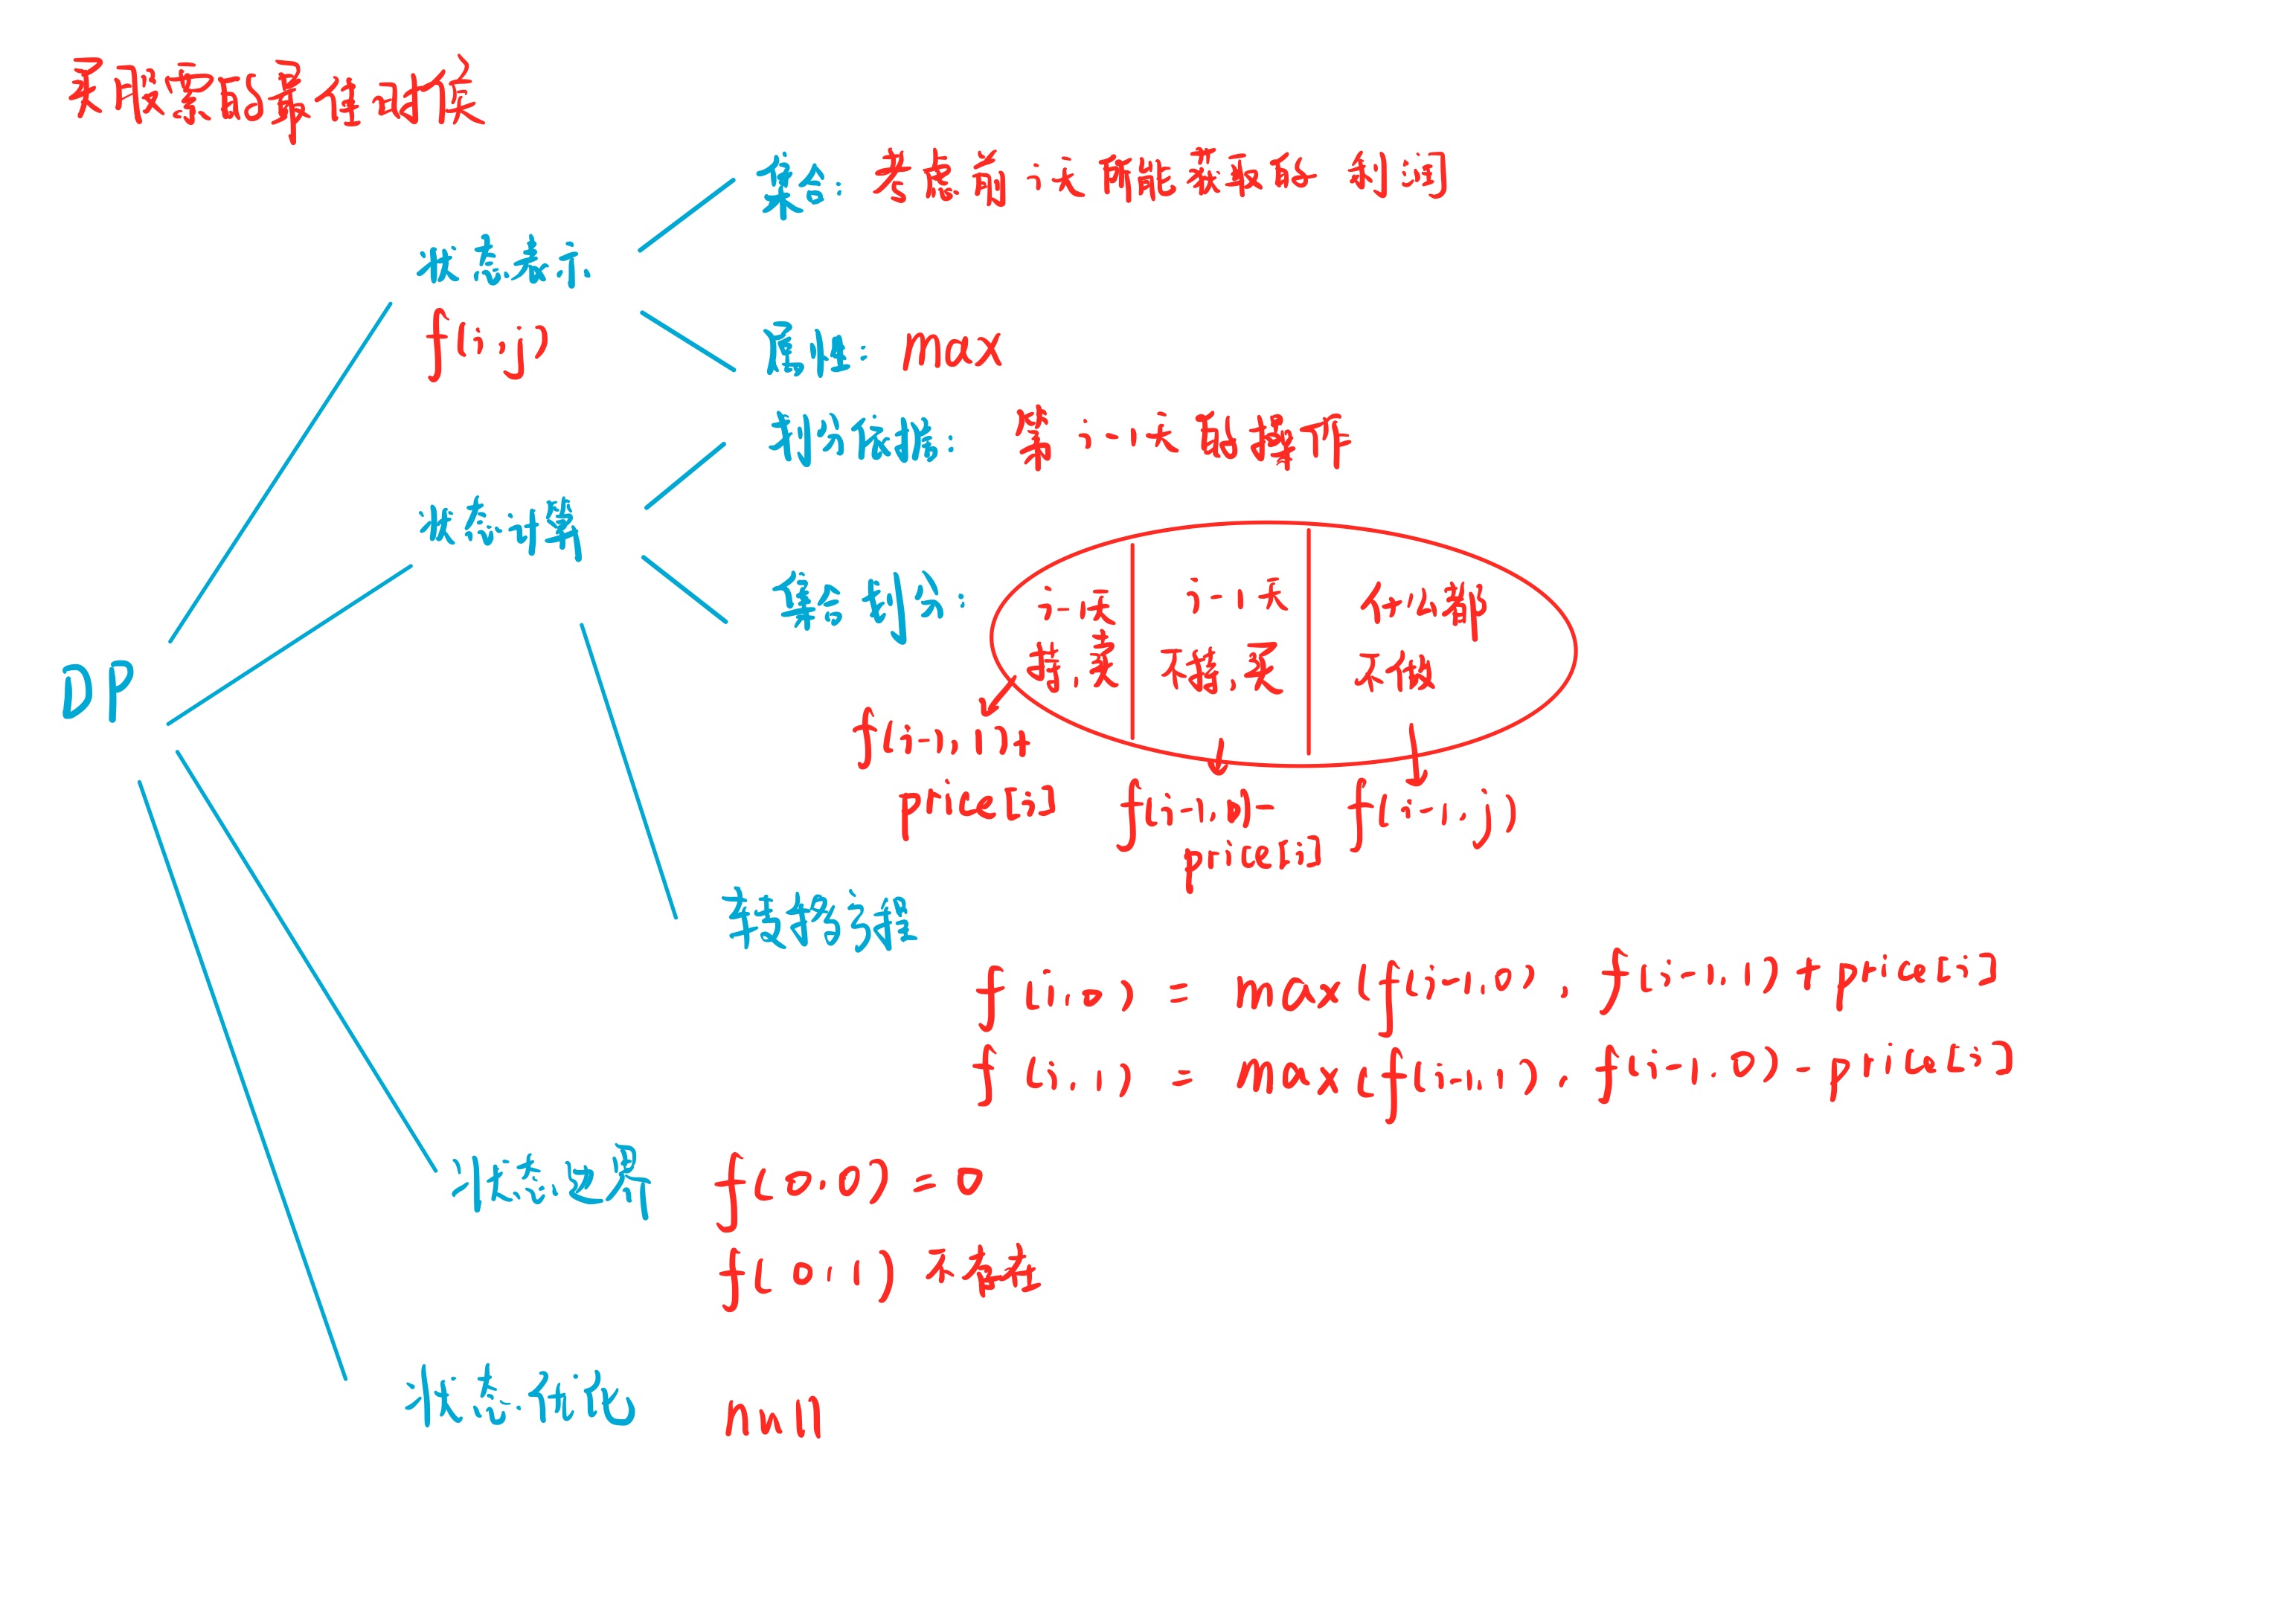 买股票的最佳时候
集合: 考虑前i天所能获取的利润
状态表示
f(i,j)
属性: max
划分依据: 第i-1天的操作
状态计算
集合划分:
i-1天
持,卖
i-1天
不持,买
什么都
不做
f(i-1,1)+
price[i]
f(i-1,0)-
price[i]
f(i-1,j)
DP
转移方程
f(i,0) = max(f(i-1,0), f(i-1,1)+price[i]
f(i,1) = max(f(i-1,1), f(i-1,0)-price[i]
状态边界 f(0,0)=0
f(0,1) 不存在
状态优化 null